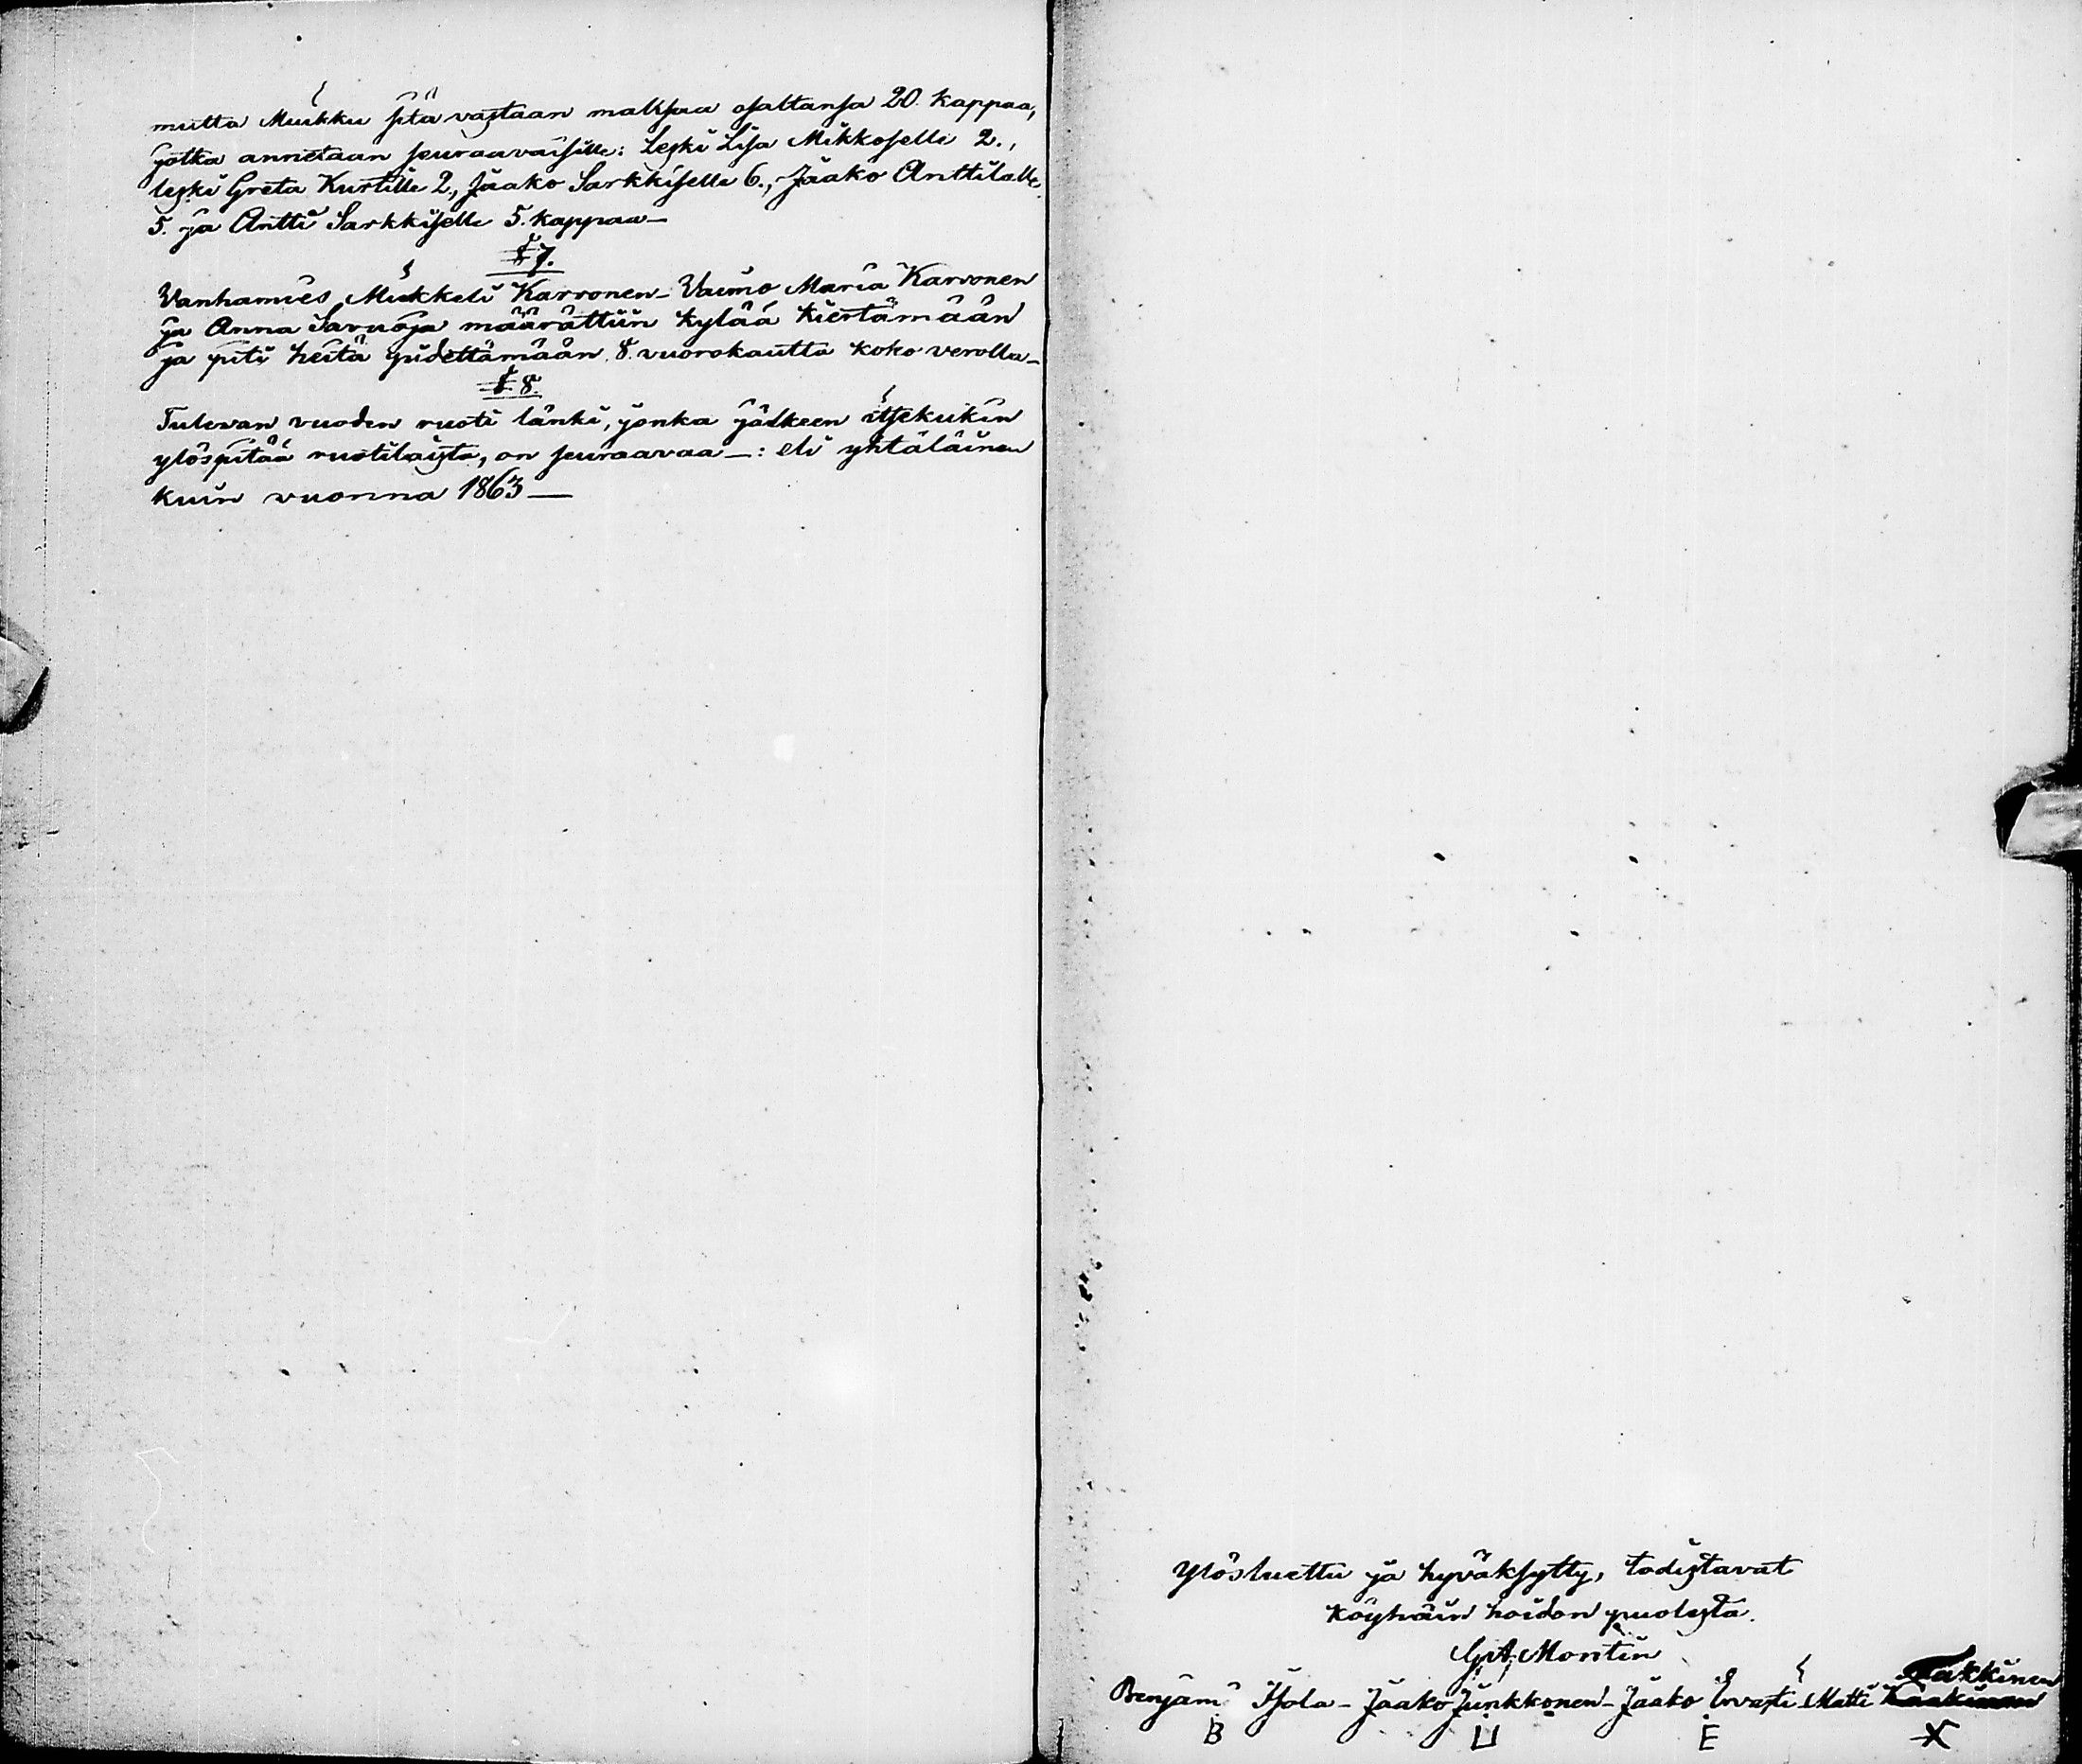 mutta Muikku sitä vastaan maksaa osaltansa 20 kappaa,
jotka annetaan seuraavaisille: Leski Lisa Mikkoselle 2.,
leski Greta Kurtille 2, Jaako Sarkkiselle 6., Jaako Anttilalle
5. ja Antti Sarkkiselle 5. kappaa—
§ 7.
Vanhamies Mikkeli Karvonen – Vaimo Maria Karvonen
ja Anna Savuoja määrättiin kylää kiertämään
ja piti heitä pidettämään 8 vuorokautta koko verolla—
§ 8.
Tulevan vuoden ruoti länki, jonka jälkeen itsekukin
ylöspitää ruotilaista, on seuraavaa —: eli yhtäläinen
kuin vuonna 1863—
Ylösluettu ja hyväksytty, todistavat
köyhäin hoidon puolesta.
G. A. Montin
Benjami Isola – Jaako Junkkonen – Jaako Ervasti Matti Takkinen
B U E X